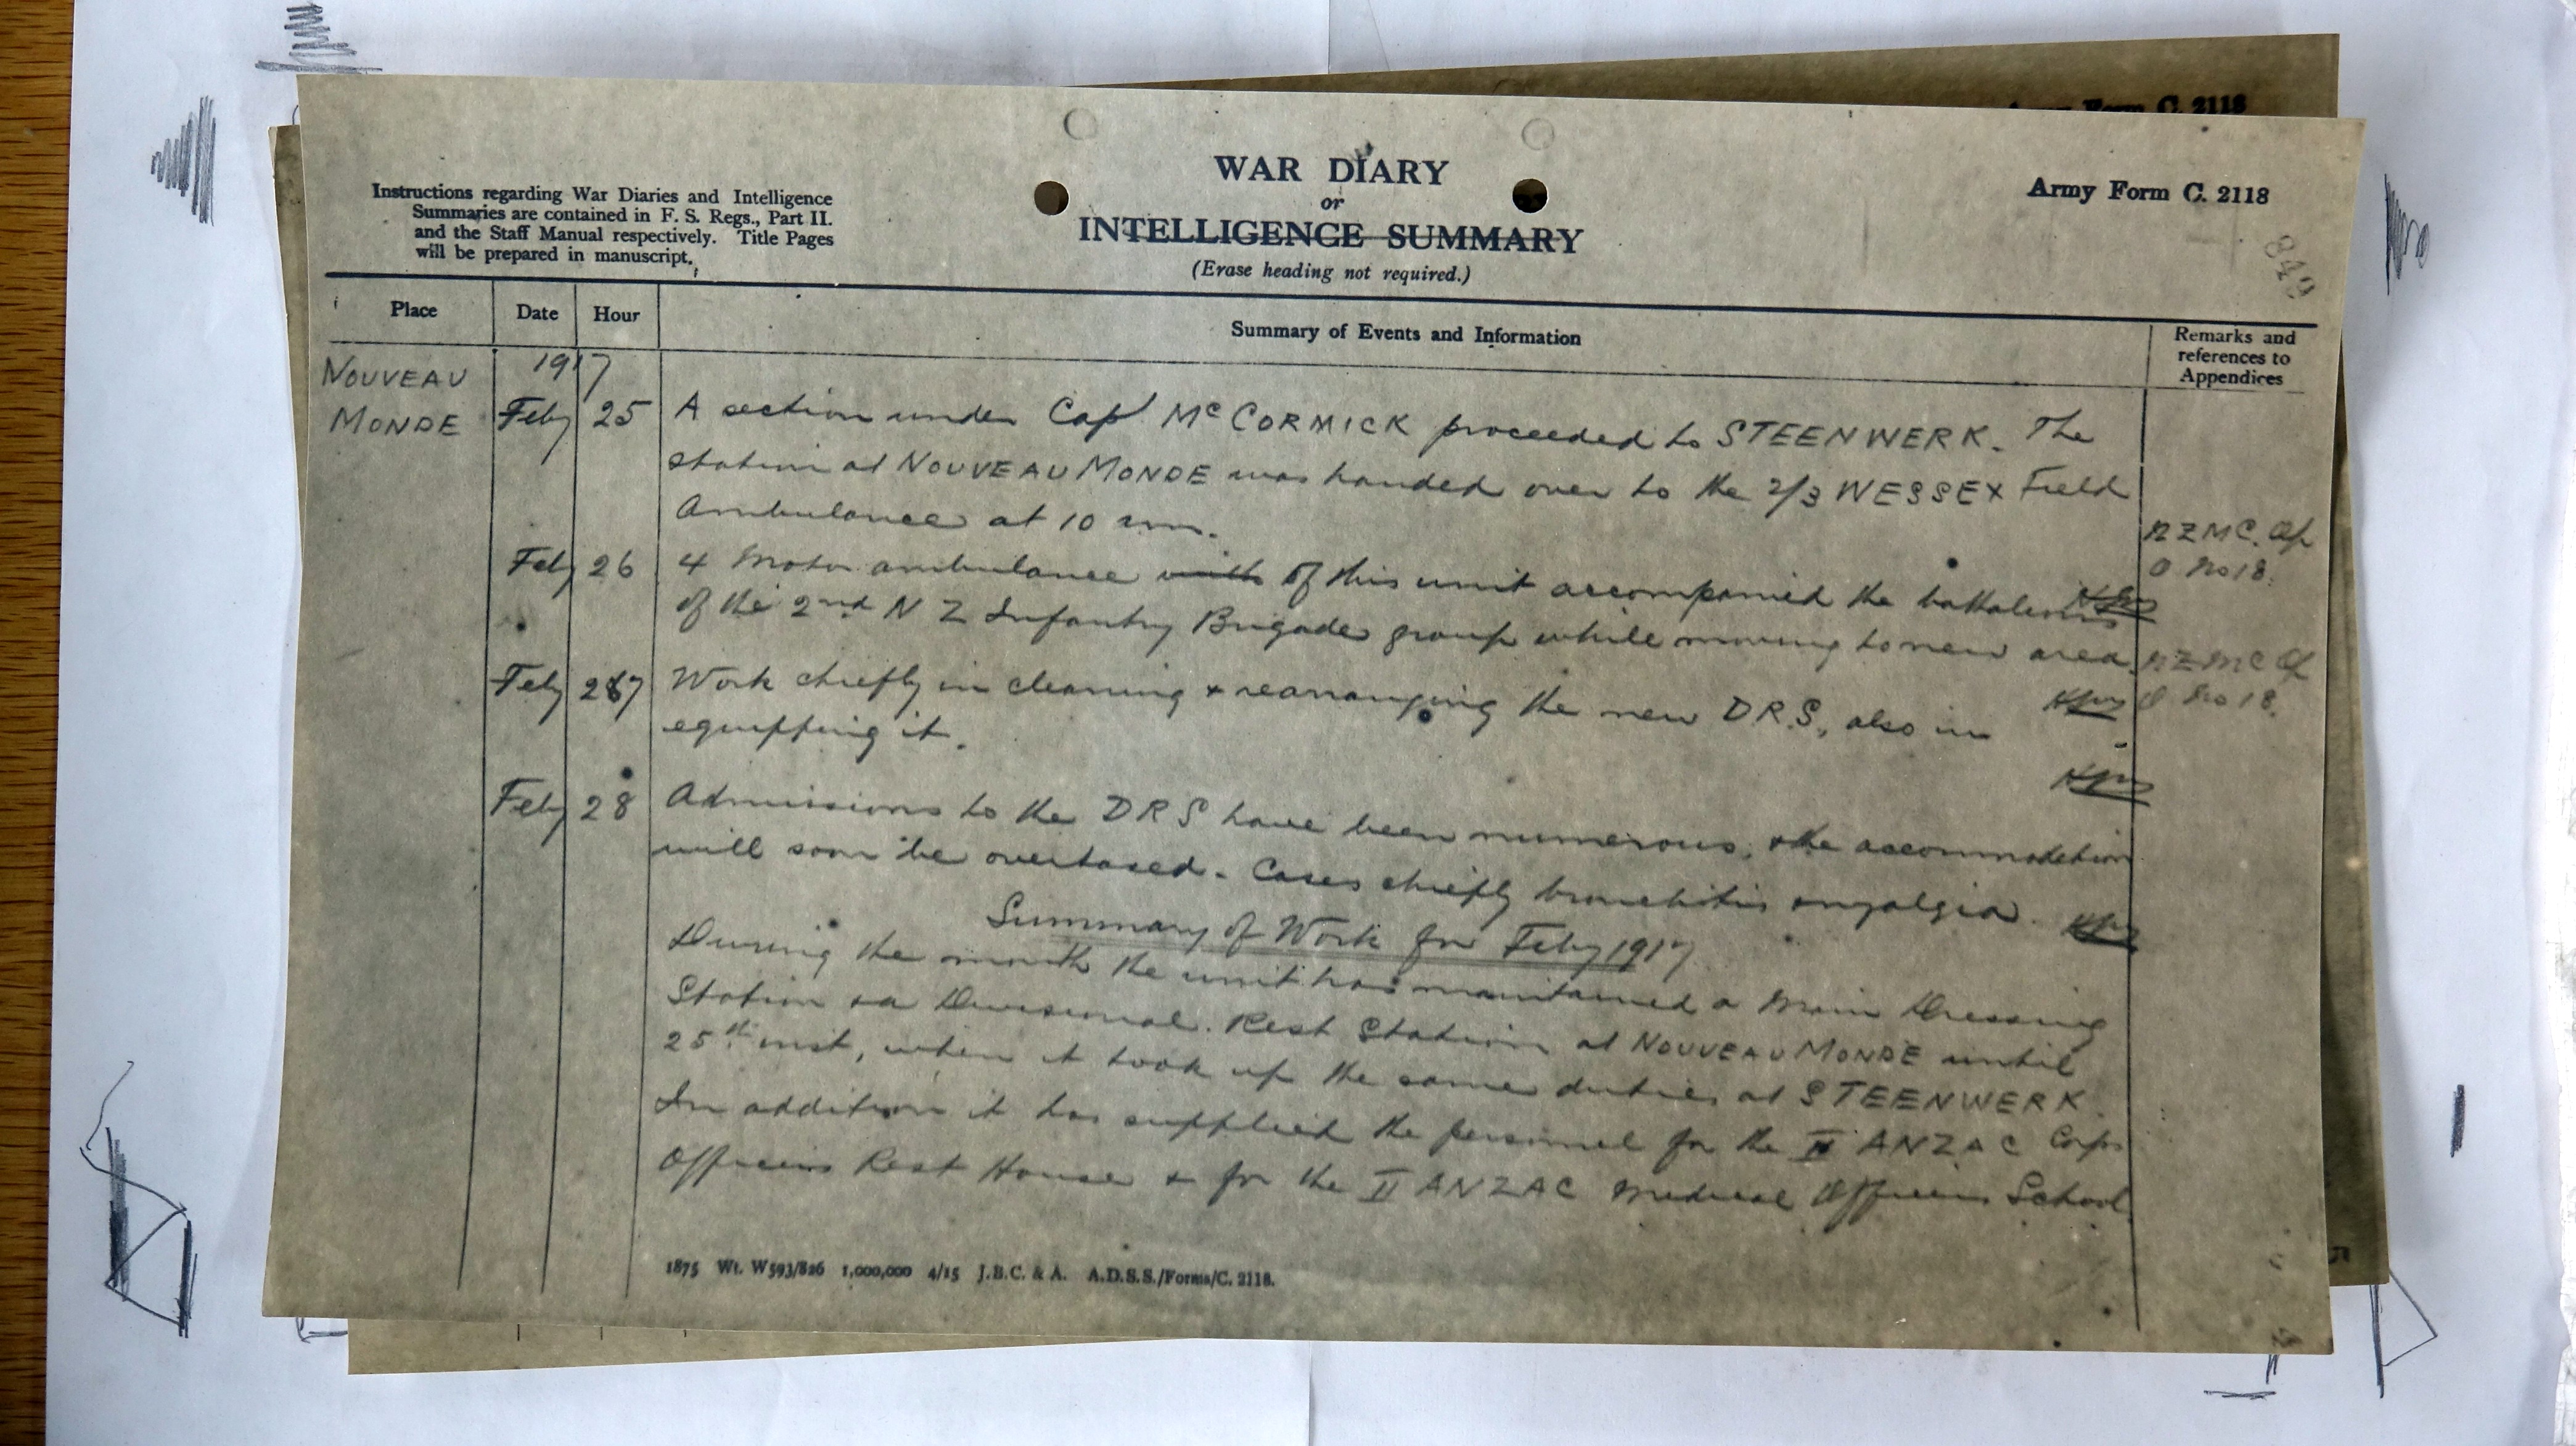 Army Form C. 2118
WAR DIARY
or
INTELLIGENCE SUMMARY
(Erase heading not required.)
Instructions regarding War Diaries and Intelligence
Summaries are contained in F. S. Regs., Part II.
and the Staff Manual respectively. Title Pages
will be prepared in manuscript.
Army Form C. 2118
849
Place Date Hour Summary of Events and Information Remarks and
references to
Appendices
NOUVEAU 1917
MONDE Feby 25 A section under Cap McCORMICK proceeded to STEENWERK. The
station at NOUVEAU MONDE was handed over to the 2/3 WESSEX Field
Ambulance at 10 am.
NZMC. Op
O No 18.
Feby 26 4 Motor ambulance with of this unit accompanied the battalions
of the 2nd N Z Infantry Brigade group while moving to new area
NZMC Op
O No 18.
Feby 267 Work chiefly in cleaning & rearranging the new D.R.S., also in
equipping it.
Feby 28 Admissions to the DRS have been numerous, & the accommodation
will soon be overtaxed. Cases chiefly bronchitis & myalgia.
Summary of Work for Feby 1917
During the month the unit has maintained a Main Dressing
Station & a Divisional Rest Station at NOUVEAU MONDE until
25th inst, when it took up the same duties at STEENWERK.
In addition it has supplied the personnel for the II ANZAC Corps
Officers Rest House & for the II ANZAC Medical Officers School.
1875 Wt. W593/826 1,000,000 4/15 J.B.C. & A. A.D.S.S./Forms/C. 2118.